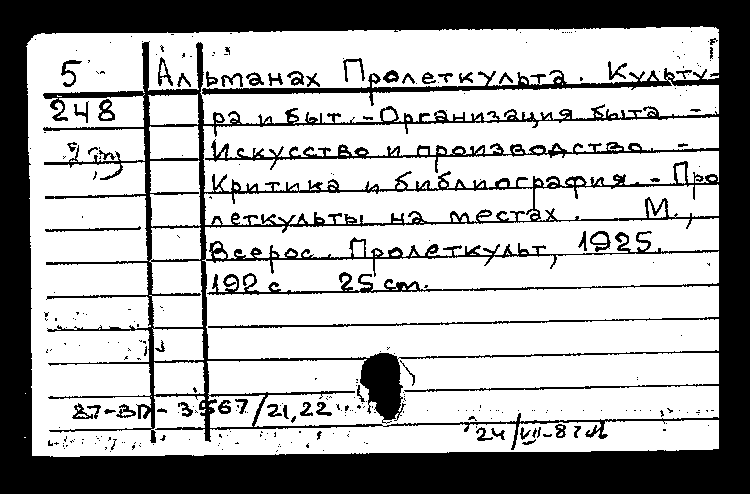 5 Альманах Пролеткульта. Культу-
248 ра и быт. - Организация быта. -
Искусство и производство. -
Критика и библиография. - Про
леткульты на местах. М.,
Всерос. Пролеткульт, 1925.
192 с. 25 ст.
87-ВП-3567/21,22
24/VII-87